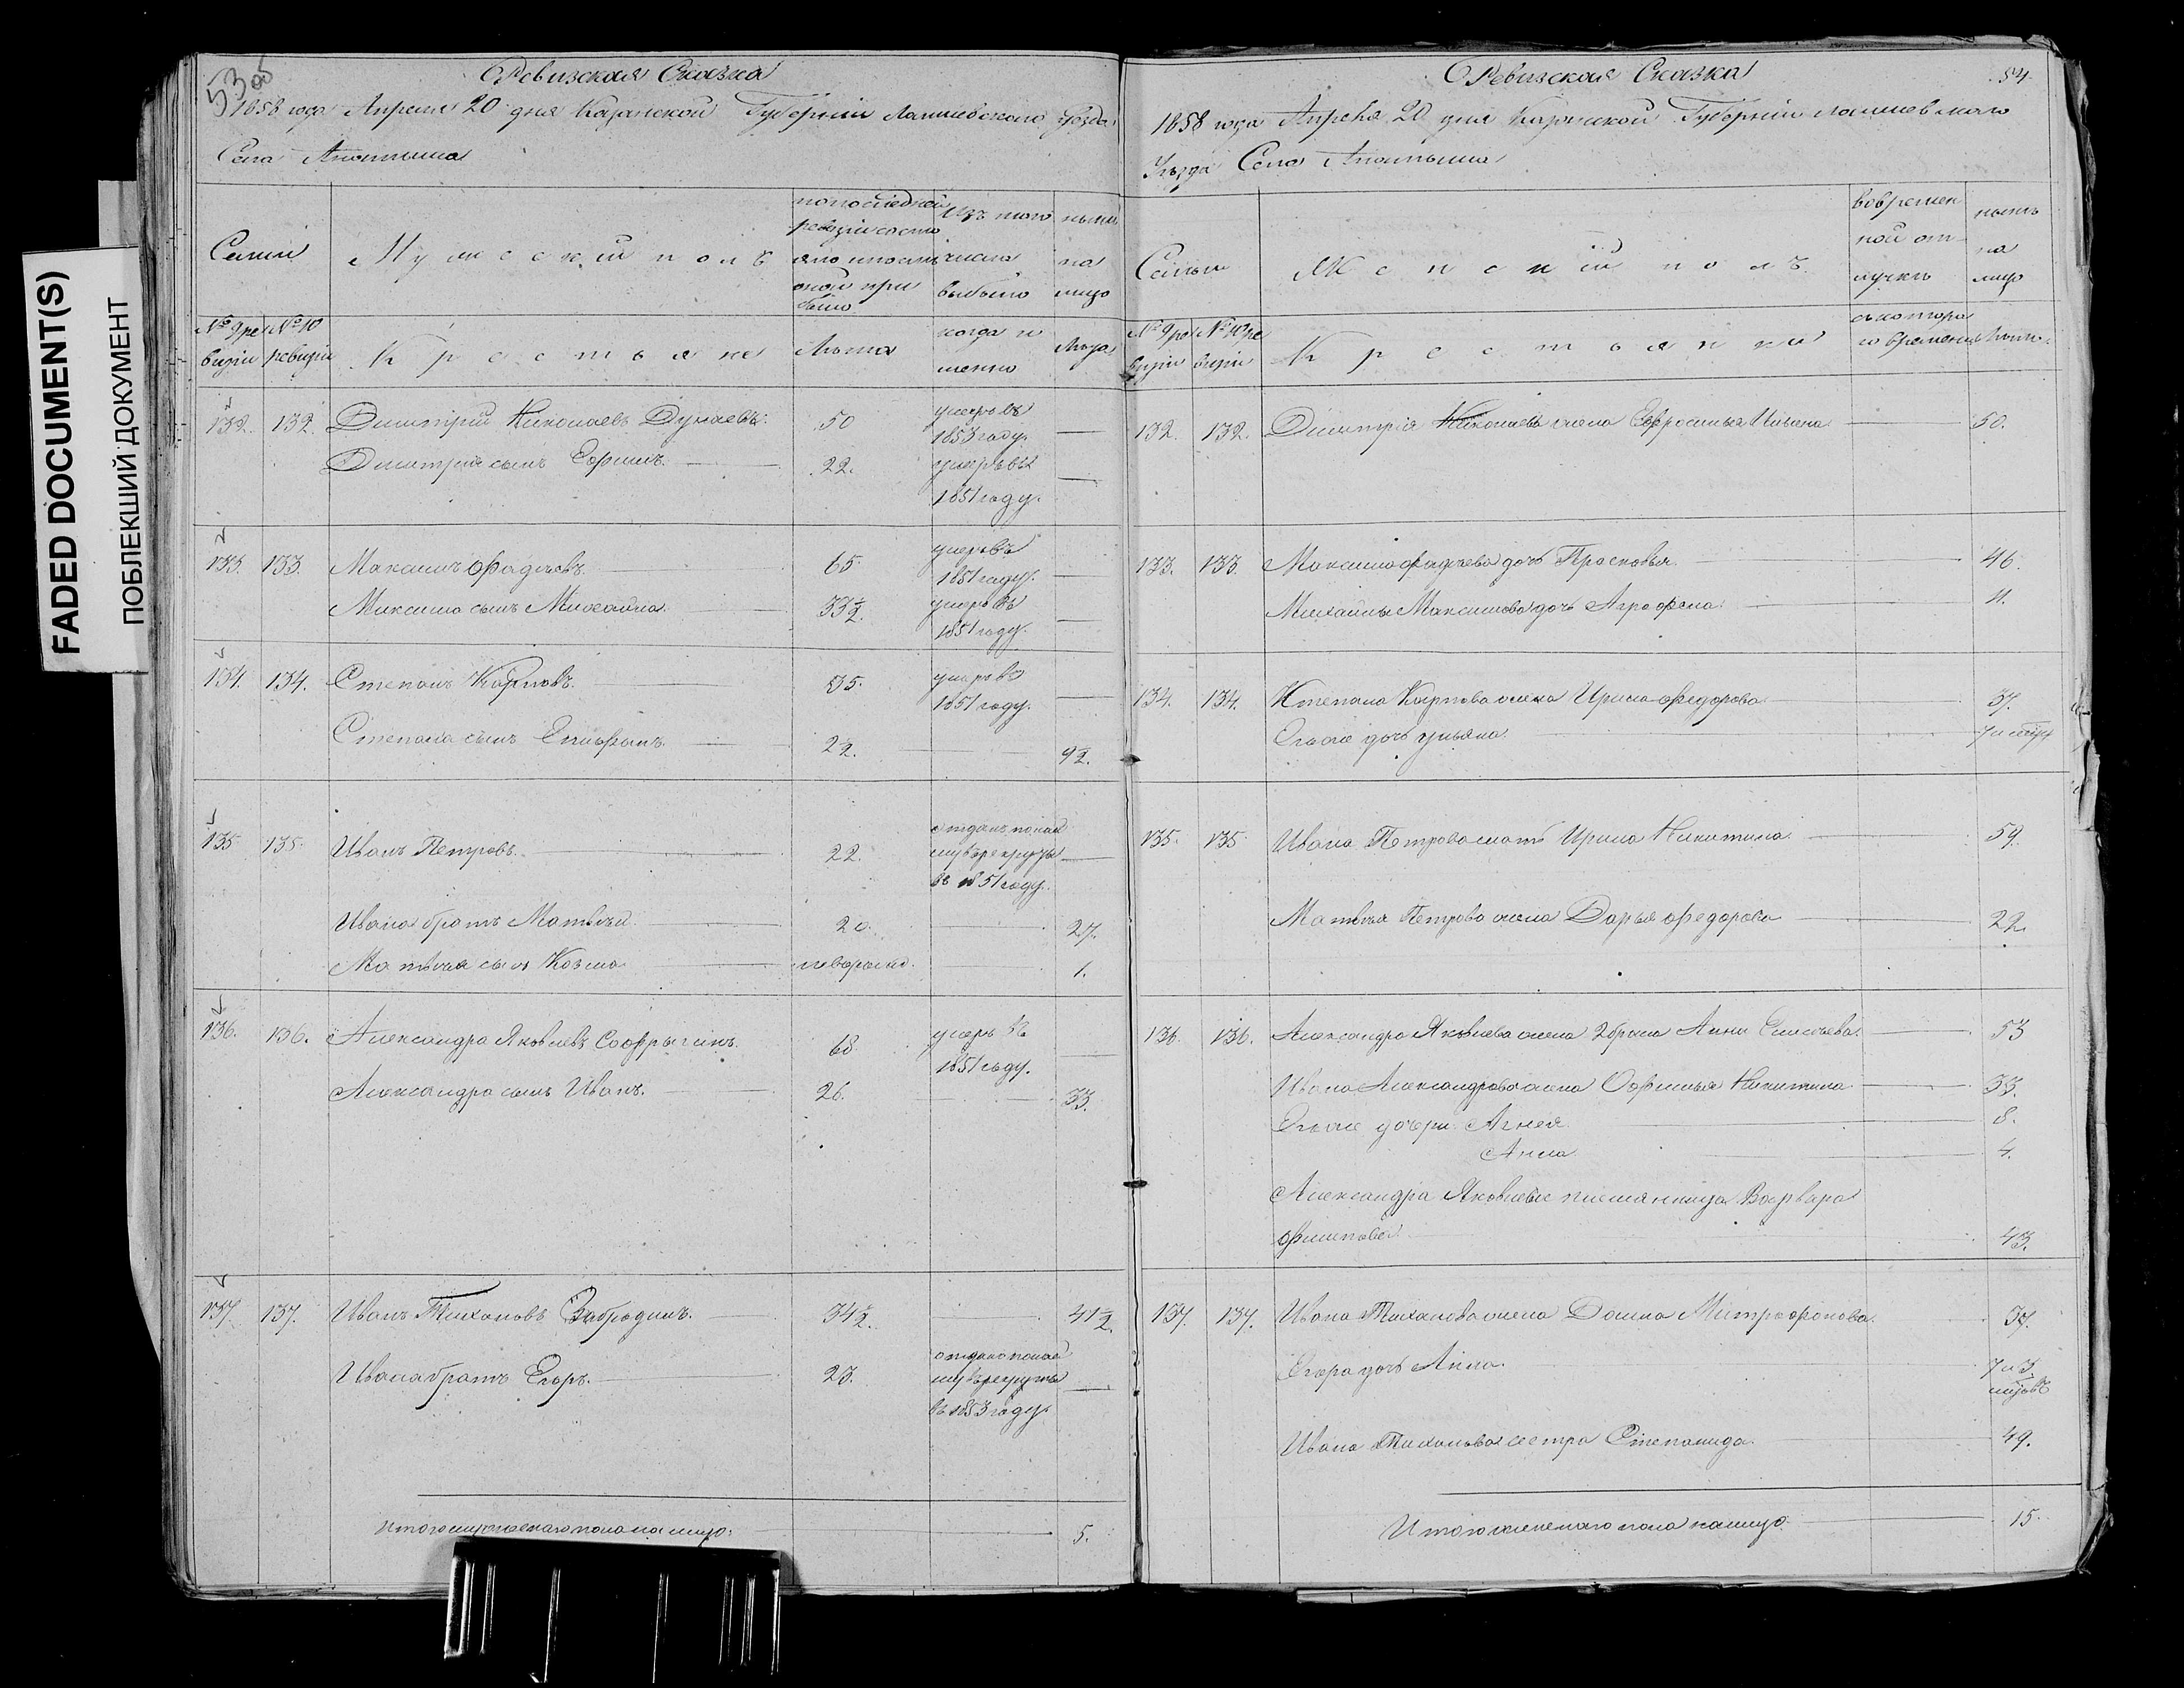 FADED DOCUMENT(S)
ПОБЛЕКШИЙ ДОКУМЕНТ
53 об
Ревизская Сказка
1858 года Апреля 20 дня Казанской Губерніи Лаишевского Уѣзда
Села
Семьи
Мужескій полъ
по последней ревизіи состо
яло и после
оной при
было
Изъ того
числа
выбыло
ныне
на
лицо
№ 9 ре
визіи
№ 10
ревизіи
Крестьяне
Лѣта
когда и
именно
Лѣта
132. 132. Дмитрій Николаевъ Дунаевъ 50 умеръ въ
1853 году. —
Дмитрія сынъ Ефимъ. 22. умеръ въ
1851 году. —
133. 133. Максимъ Фадѣевъ 65 умеръ въ
1851 году. —
Максима сынъ Михайла. 33½. умеръ въ
1851 году. —
134. 134. Степанъ Карповъ. 35. умеръ въ
1851 году. —
Степана сынъ Епифанъ. 2½. — 9½.
135 135. Иванъ Петровъ. 22. отданъ пона
бору въ рекруты
въ 1851 году. —
Ивана братъ Матвѣй 20. — 27.
Матвѣя сынъ Козма — 1.
136. 136. Александра Яковлевъ 68 умеръ въ
1851 году. —
Александра сынъ Иванъ. 26. — 33.
137. 137. Иванъ Тихоновъ 34½. — 41½.
Ивана братъ Егоръ. 23.
въ 1853 году. —
Итого мужескаго пола на лицо: 5.
Ревизская Сказка
54
1858 года Апреля 20 дня Казанской Губерніи Лаишевского
Уѣзда Села
Семьи
Женскій полъ
во времен
ной от
лучкѣ
нынѣ
на
лицо
№ 9 ре
визіи
№ 10 ре
визіи
Крестьянки
съ котора
го времени
Лѣта
132. 132. Дмитрія Николаева жена Ефросинья 50.
133. 133. Максима Фадѣева дочь Прасковья 46.
Михайлы Максимова дочь Аграфена 11.
134. 134. Степана Карпова жена Ирина Федорова 37.
Ея же дочь Ульяна.
135. 135 Ивана Петрова мать Ирина Никитина 59.
Матвѣя Петрова жена Дарья Федорова 22.
136. 136. Александра Яковлева жена 2 брака Анна Елисѣева. 53
Ивана Александрова жена Офимья Никитина 33.
Ея же дочери 8.
Анна 4.
Александра Яковлева племянница Варвара
Филипова. 43.
137. 137. Ивана Тихонова жена Домна Митрофонова 37.
Егора дочь Анна. 7 и 3
Ивана Тихонова сестра Степанида. 49.
Итого женскаго пола на лицо 15.